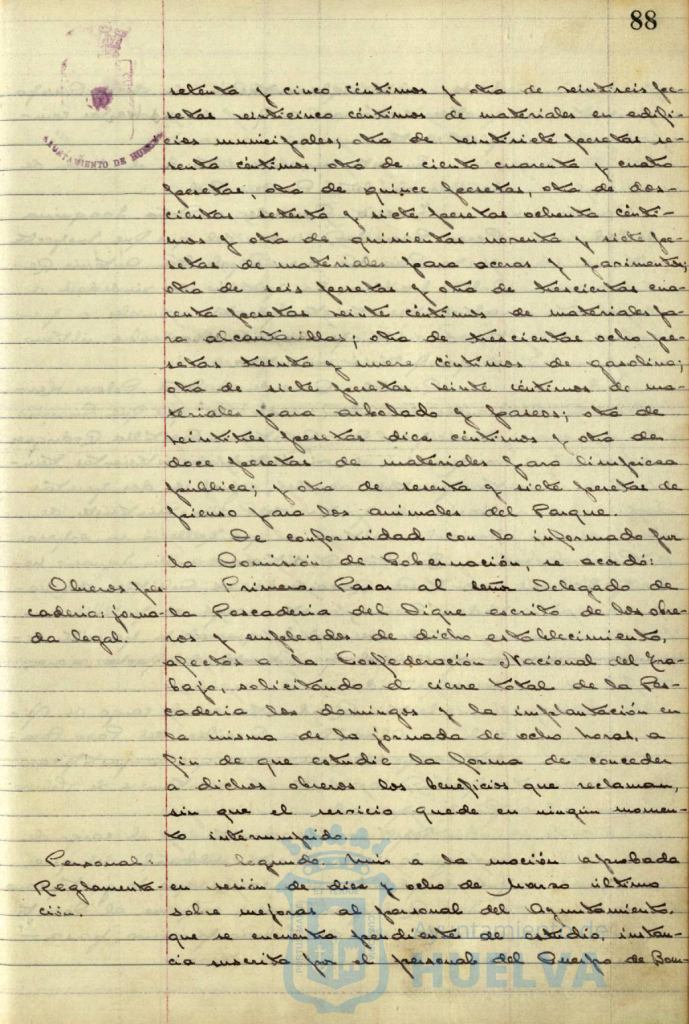 88
AYUNTAMIENTO DE HUELVA
setenta y cinco céntimos y otra de veintiseis pe-
setas veinticinco céntimos de materiales en edifi-
cios municipales; otra de veintisiete pesetas se-
senta céntimos, otra de ciento cuarenta y cuatro
pesetas, otra de quince pesetas, otra de dos-
cientas setenta y siete pesetas ochenta cénti-
mos y otra de quinientas noventa y siete pe-
setas de materiales para aceras y pavimentos;
otra de seis pesetas y otra de trescientas cua-
renta pesetas veinte céntimos de materiales pa-
ra alcantarillas; otra de trescientas ocho pe-
setas treinta y nueve céntimos de gasolina;
otra de siete pesetas veinte céntimos de ma-
teriales para arbolado y paseos; otra de
veintitres pesetas diez céntimos y otra de
doce pesetas de materiales para limpieza
pública; y otra de sesenta y siete pesetas de
pienso para los animales del Parque.
De conformidad con lo informado por
la Comisión de Gobernación, se acordó:
Obreros pes-
cadería: jorna-
da legal.
Primero. Pasar al señor Delegado de
la Pescadería del Dique escrito de los obre-
ros y empleados de dicho establecimiento,
afectos a la Confederación Nacional del Tra-
bajo, solicitando el cierre total de la Pes-
cadería los domingos y la implantación en
la misma de la jornada de ocho horas, a
fin de que estudie la forma de conceder
a dichos obreros los beneficios que reclaman,
sin que el servicio quede en ningún momen-
to interrumpido.
Personal:
Reglamenta-
ción.
Segundo. Unir a la moción aprobada
en sesión de diez y ocho de Marzo último
sobre mejoras al personal del Ayuntamiento,
que se encuentra pendientes de estudio, instan-
cia suscrita por el personal del Cuerpo de Bom-
Ayuntamiento de
HUELVA